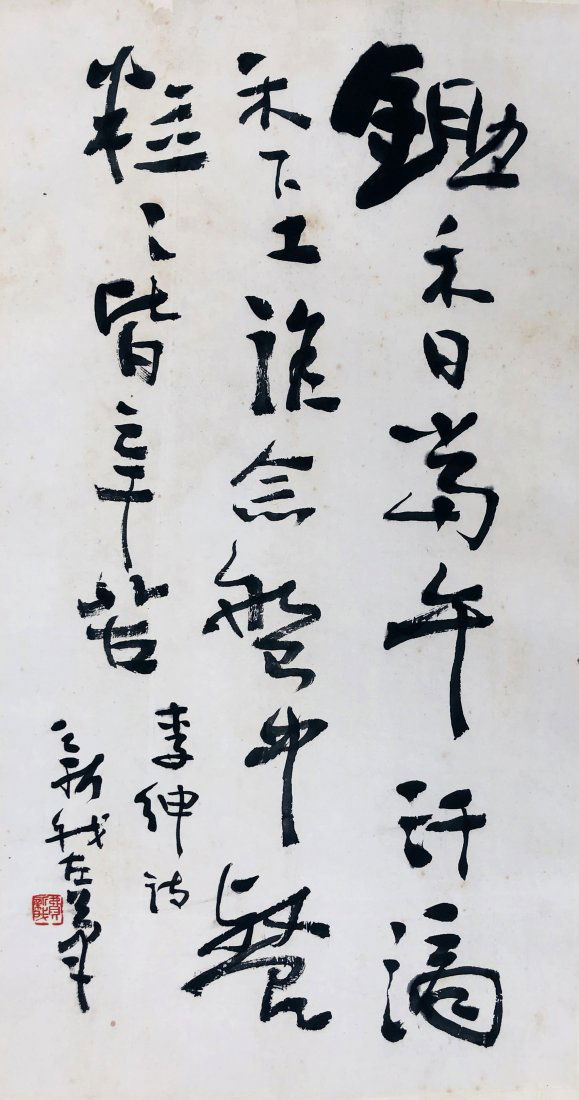 鋤禾日當午汗滴
禾下土誰念盤中餐
粒〻皆辛苦
李紳詩
新我左筆
費新我